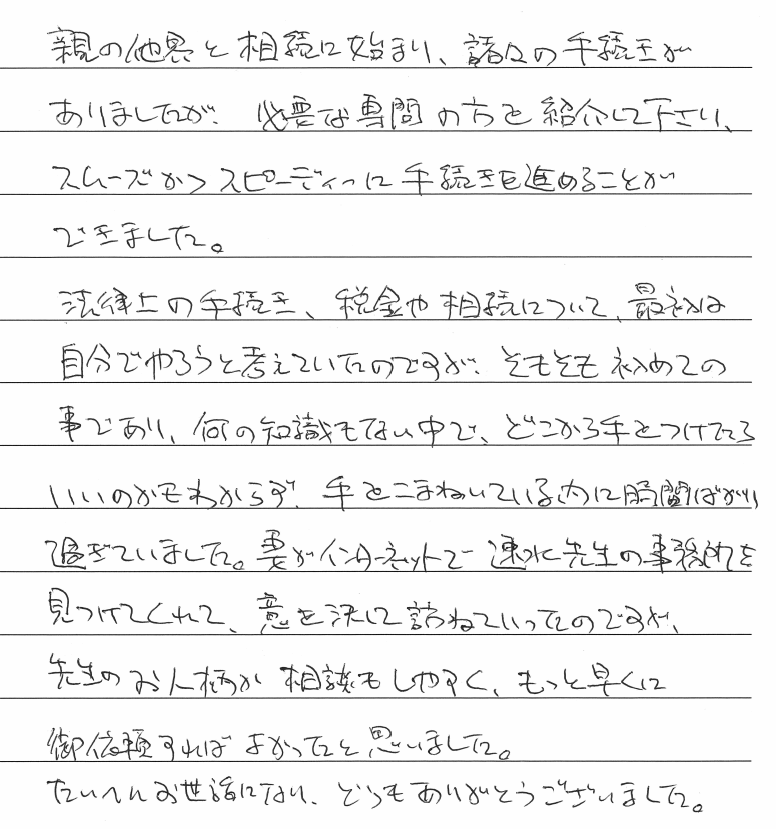 親の他界と相続に始まり、諸々の手続きが
ありましたが、必要な専門の方を紹介して下さり、
スムーズかつスピーディーに手続きを進めることが
できました。
法律上の手続き、税金や相続について、最初は
自分でやろうと考えていたのですが、そもそも初めての
事であり、何の知識もない中で、どこから手をつけてたら
いいのかもわからず、手をこまねいている内に時間ばかり
過ぎていました。妻がインターネットで速水先生の事務所を
見つけてくれて、意を決して訪ねていったのですが、
先生のお人柄が相談もしやすく、もっと早くに
御依頼すればよかったと思いました。
たいへんお世話になり、どうもありがとうございました。